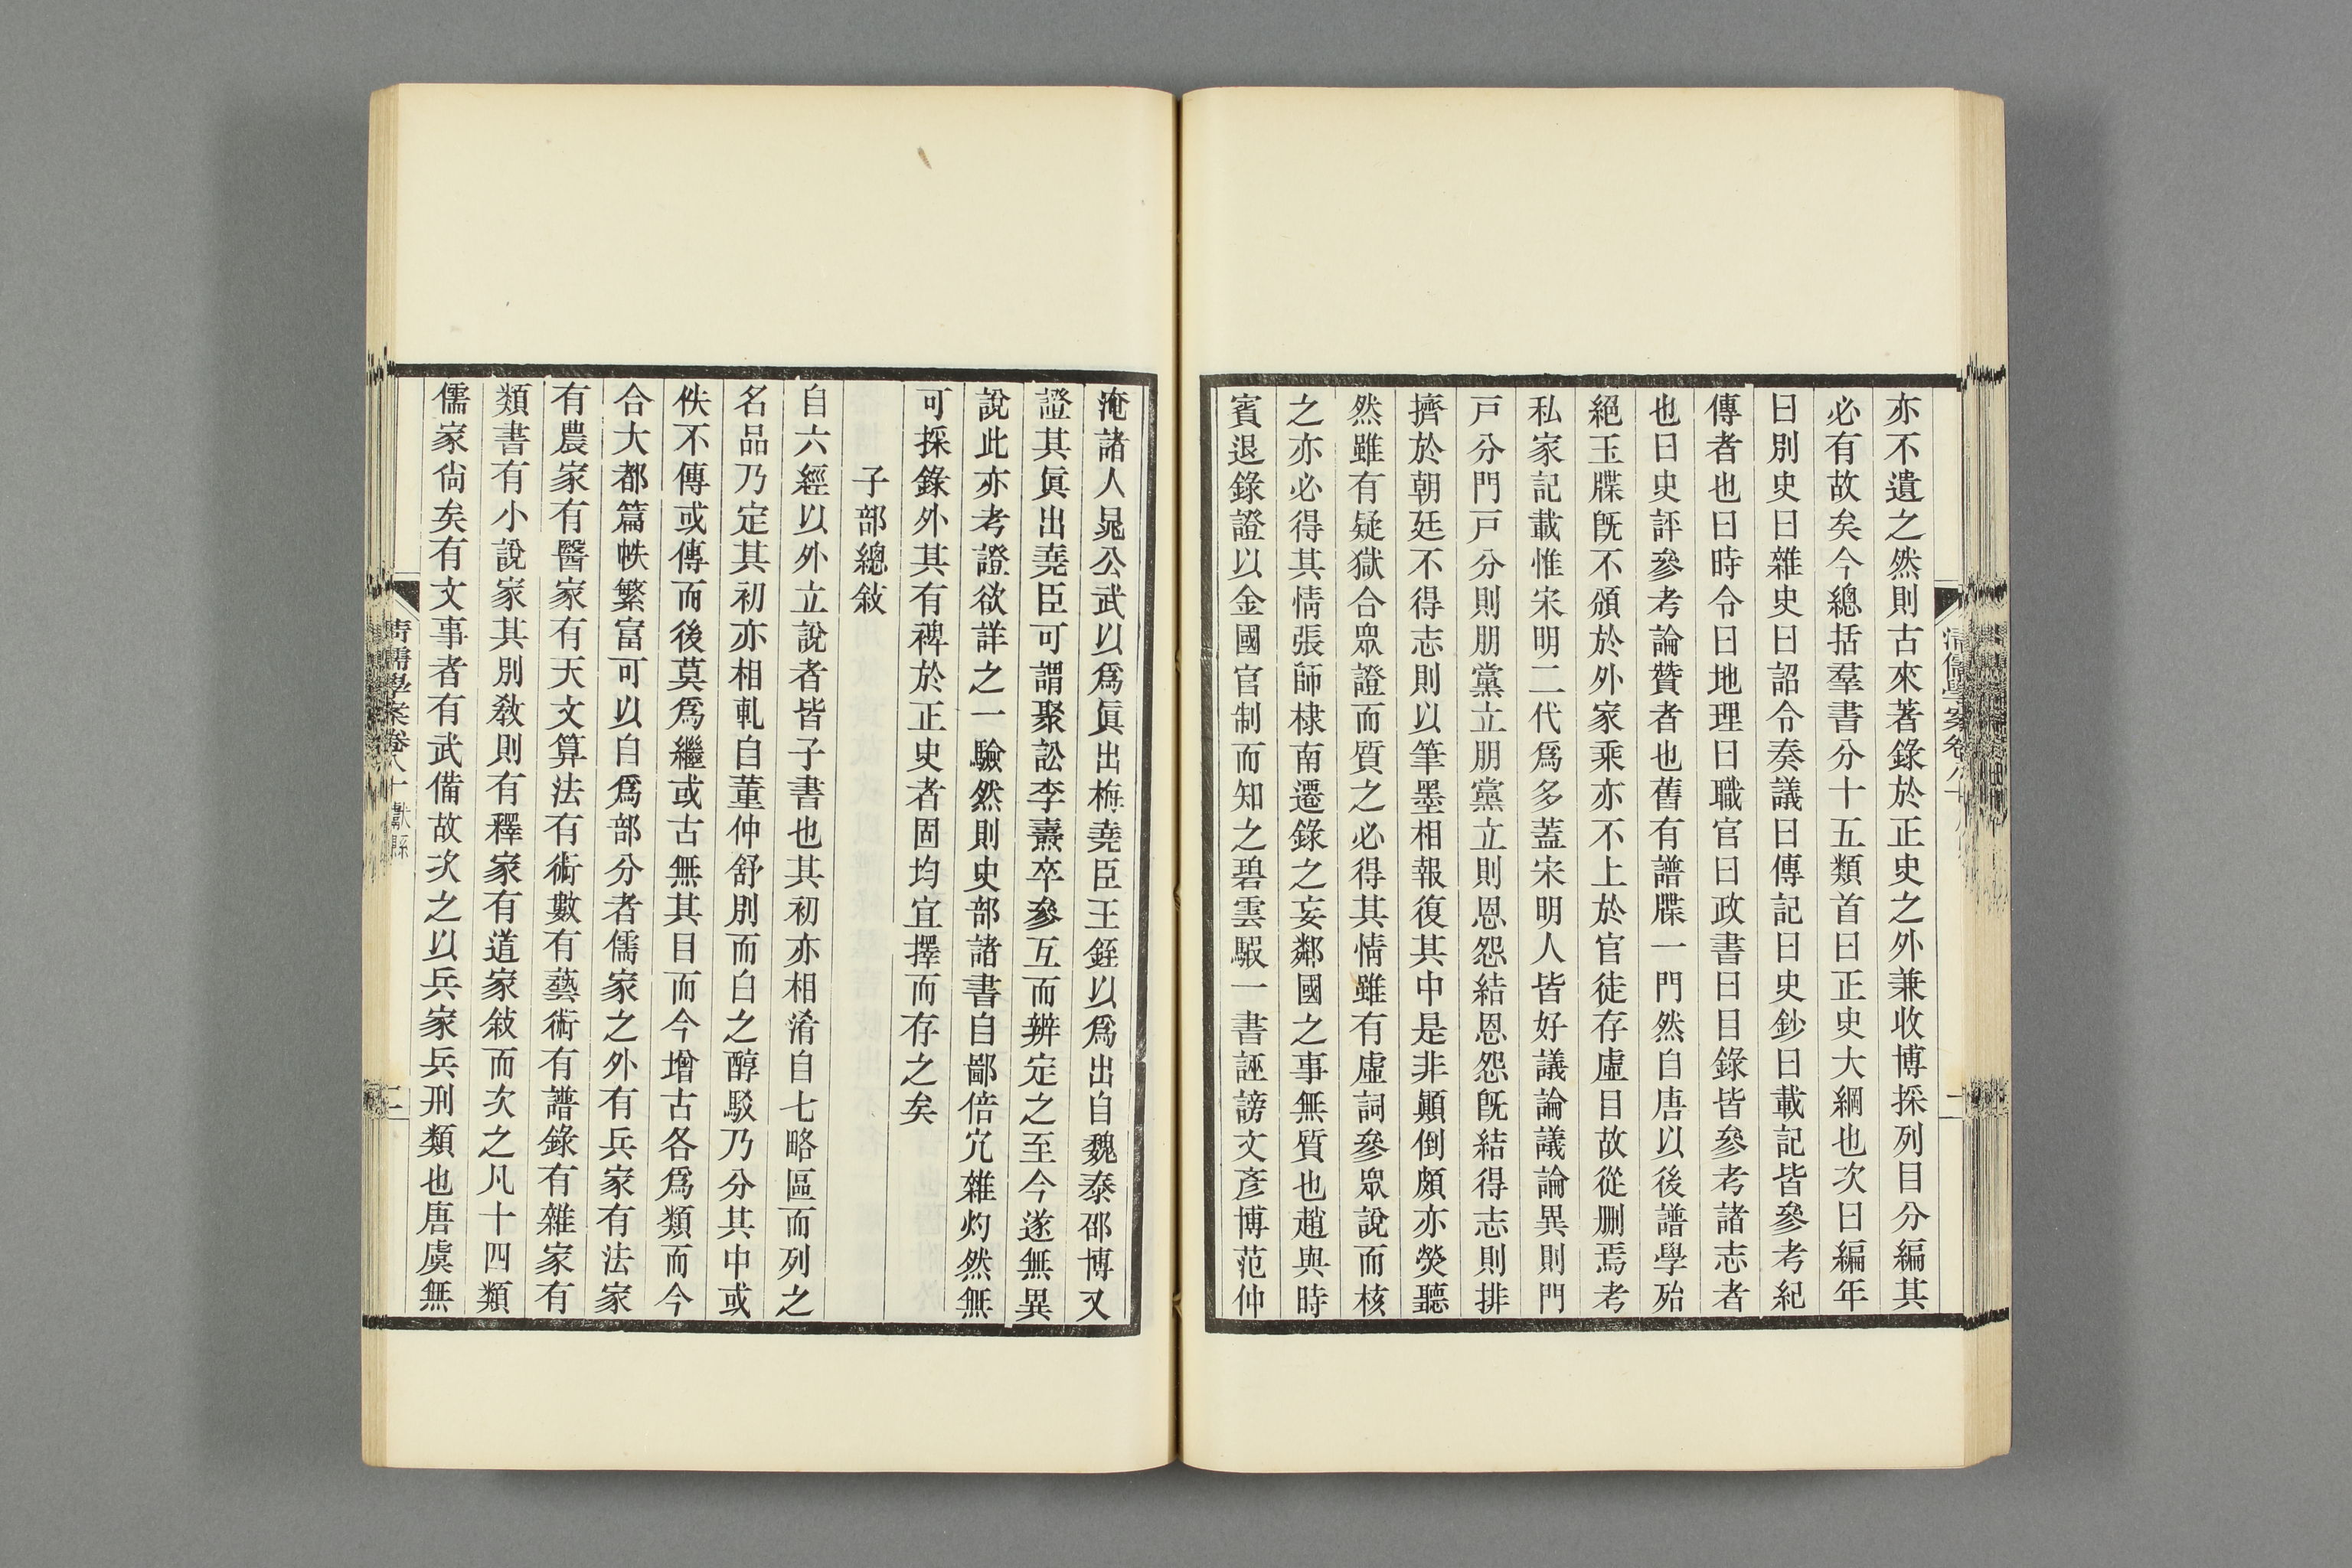 亦不遺之然則古來著錄於正史之外兼收博採列目分編其
必有故矣今總括羣書分十五類首曰正史大綱也次曰編年
曰別史曰雜史曰詔令奏議曰傳記曰史鈔曰載記皆參考紀
傳者也曰時令曰地理曰職官曰政書曰目錄皆參考諸志者
也曰史評參考論贊者也舊有譜牒一門然自唐以後譜學殆
絕玉牒旣不頒於外家乘亦不上於官徒存虛目故從刪焉考
私家記載惟宋明二代爲多蓋宋明人皆好議論議論異則門
戸分門戸分則朋黨立朋黨立則恩怨結恩怨旣結得志則排
擠於朝廷不得志則以筆墨相報復其中是非顚倒頗亦熒聽
然雖有疑獄合眾證而質之必得其情雖有虛詞參眾說而核
之亦必得其情張師棣南遷錄之妄鄰國之事無質也趙與時
賓退錄證以金國官制而知之碧雲騢一書誣謗文彥博范仲
淹諸人晁公武以爲眞出梅堯臣王銍以爲出自魏泰邵博又
證其眞出堯臣可謂聚訟李燾卒參互而辨定之至今遂無異
說此亦考證欲詳之一驗然則史部諸書自鄙倍冗雜灼然無
可採錄外其有裨於正史者固均宜擇而存之矣
子部總敍
自六經以外立說者皆子書也其初亦相淆自七略區而列之
名品乃定其初亦相軋自董仲舒別而白之醇駁乃分其中或
佚不傳或傳而後莫爲繼或古無其目而今增古各爲類而今
合大都篇帙繁富可以自爲部分者儒家之外有兵家有法家
有農家有醫家有天文算法有術數有藝術有譜錄有雜家有
類書有小說家其別敎則有釋家有道家敍而次之凡十四類
儒家尙矣有文事者有武備故次之以兵家兵刑類也唐虞無
清儒學案卷八十 獻縣
二